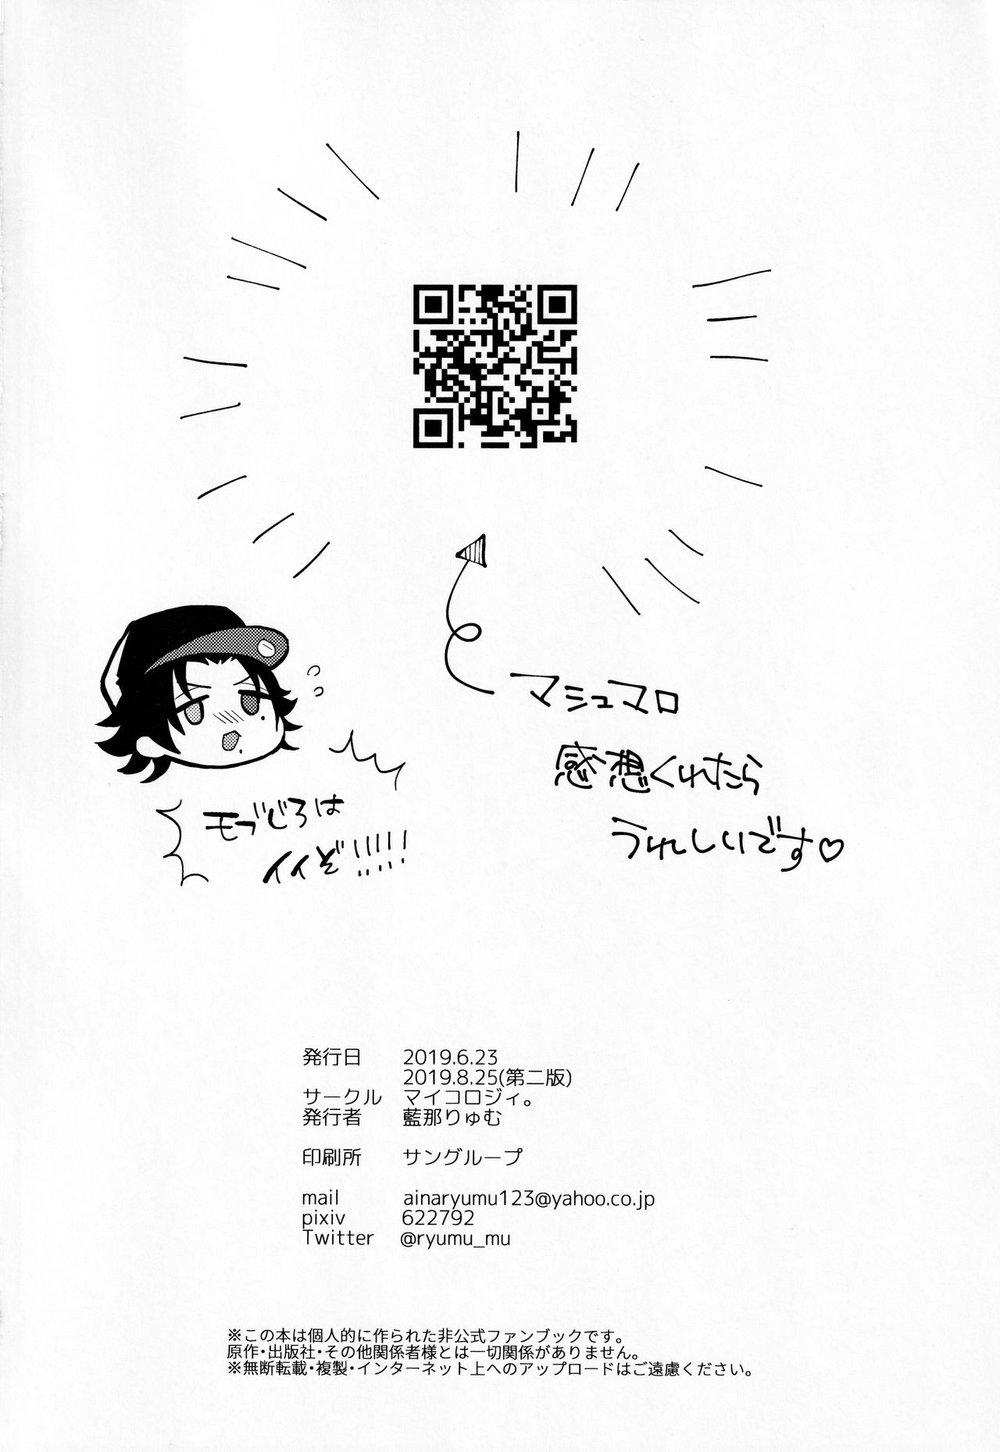 マシュマロ
感想くれたら
うれしいです♡
モブじろは
イイぞ!!!!!
発行日 2019.6.23
2019.8.25(第二版)
サークル マイコロジィ。
発行者 藍那りゅむ
印刷所 サングループ
mail ainaryumu123@yahoo.co.jp
pixiv 622792
Twitter @ryumu_mu
※この本は個人的に作られた非公式ファンブックです。
原作・出版社・その他関係者様とは一切関係がありません。
※無断転載・複製・インターネット上へのアップロードはご遠慮ください。